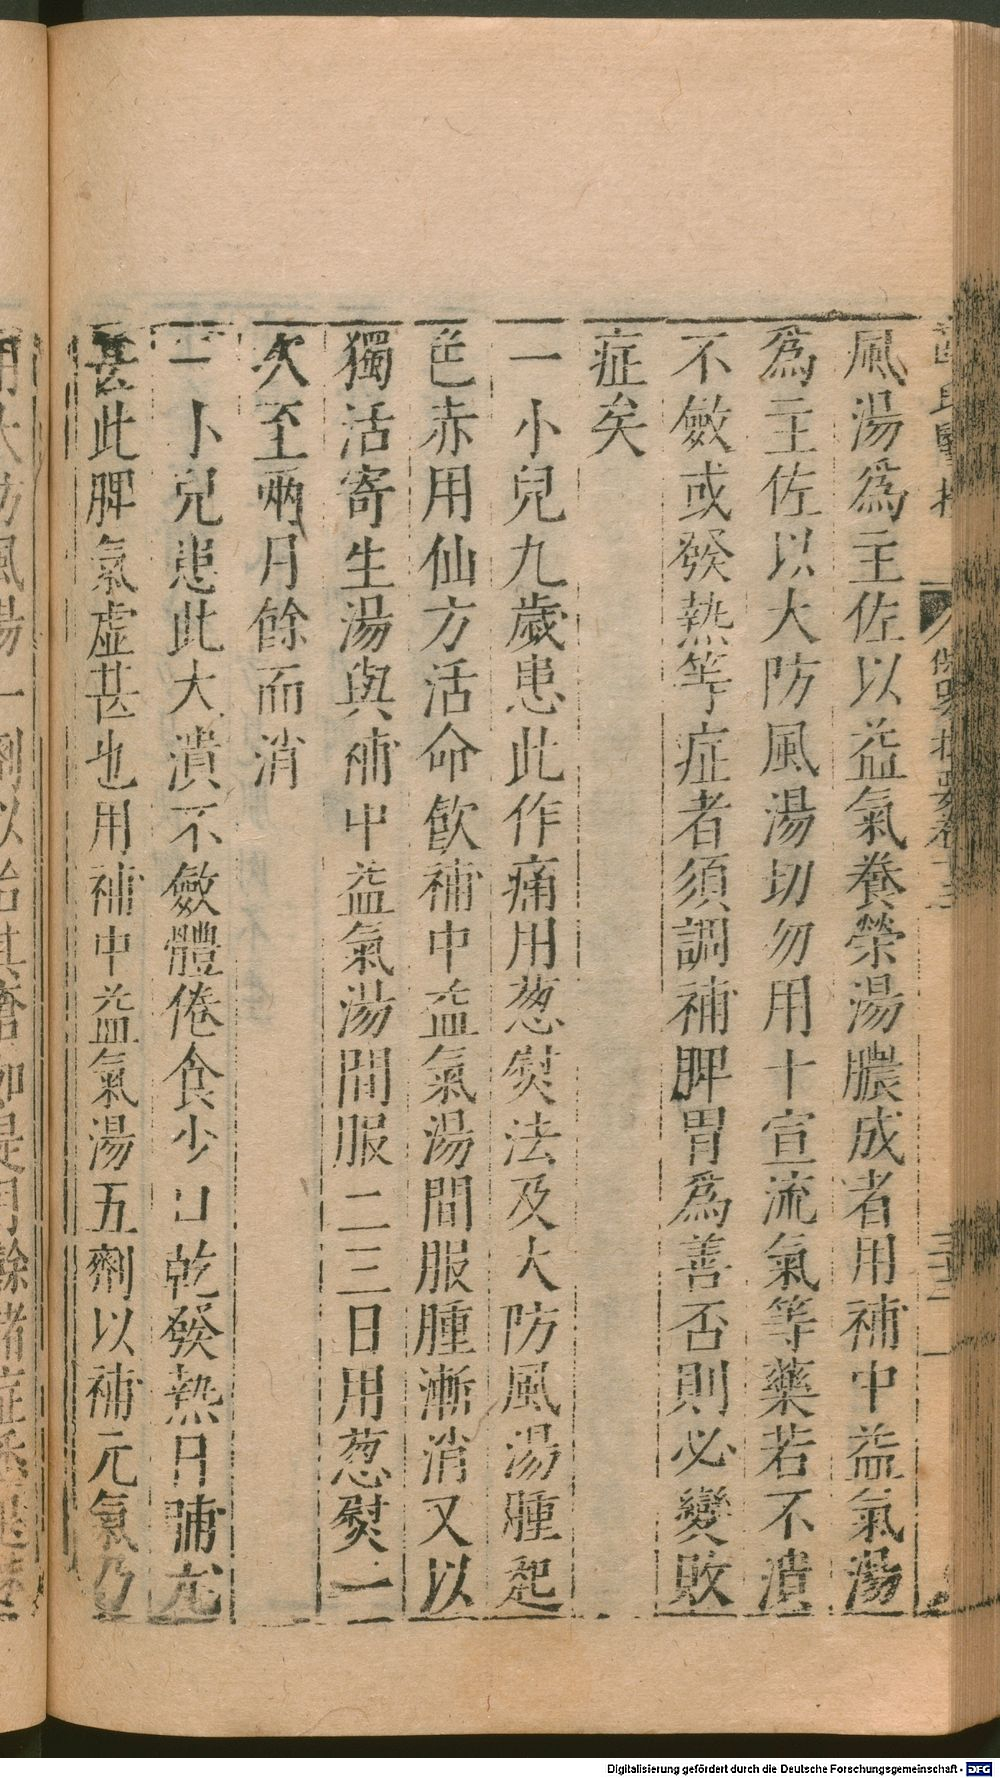 風湯爲主佐以益氣養榮湯膿成者用補中益氣湯
爲主佐以大防風湯切勿用十宣流氣等藥若不潰
不斂或發熱等症者須調補脾胃爲善否則必變敗
症矣
一小兒九歲患此作痛用葱熨法及大防風湯腫起
色赤用仙方活命飮補中益氣湯間服腫漸消又以
獨活寄生湯與補中益氣湯間服二三日用葱熨一
次至兩月餘而消
一小兒患此大潰不斂體倦食少口乾發熱日晡尤
甚此脾氣虛甚也用補中益氣湯五劑以補元氣乃
用大防風湯一劑以治其瘡如是月餘諸症悉退
Digitalisierung gefördert durch die Deutsche Forschungsgemeinschaft - DFG